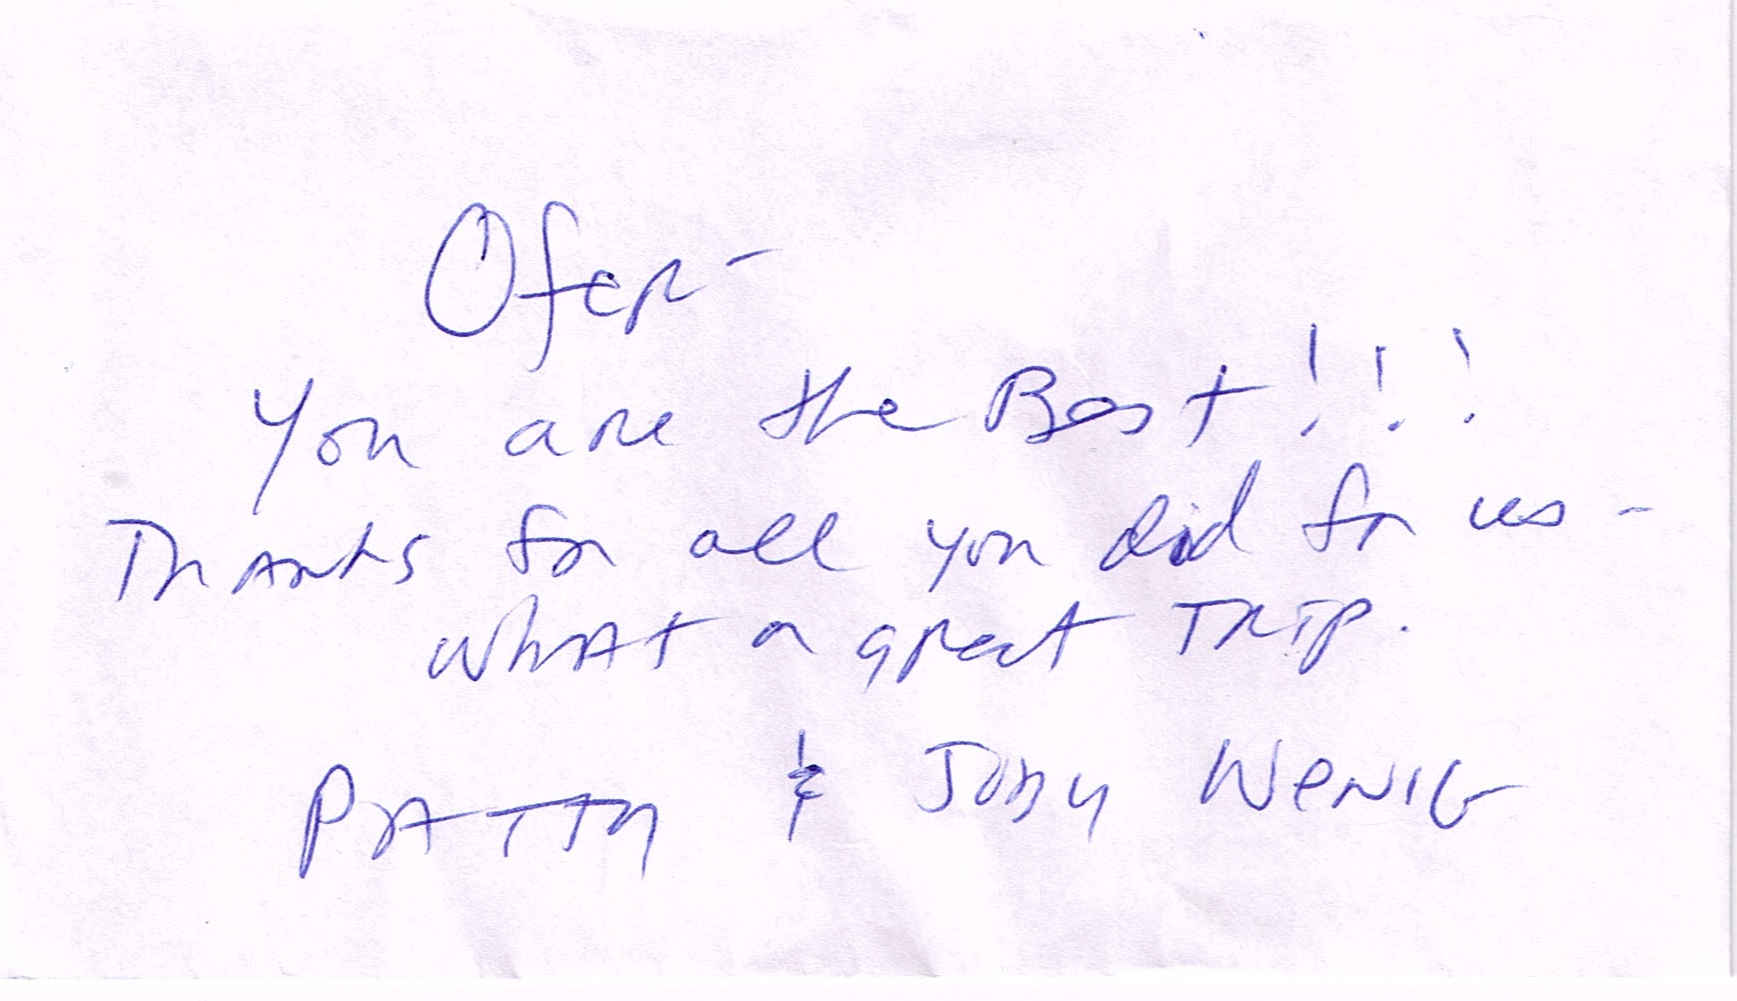 Ofer -
You are the Best!!!
Thanks for all you did for us -
what a great TRIP.
PATTY & JODY WENIG